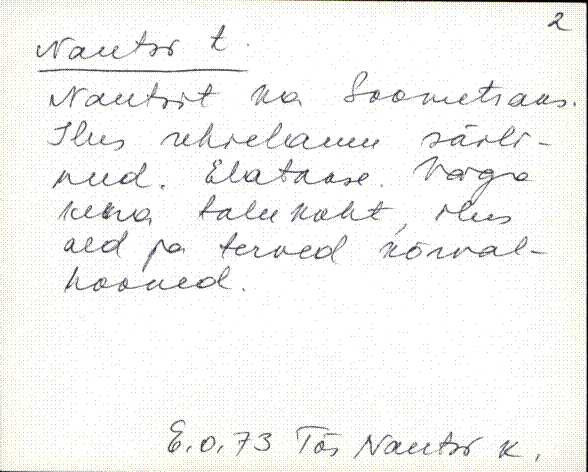 2
Nautsi t.
Nautsit ka Soometsaas.
Ilus rehielamu säili-
nud. Elatakse. Väga
kena talukoht, ilus
aed ja terved kõrval-
hooned.
E.O.73 Tõs Nautsi k.